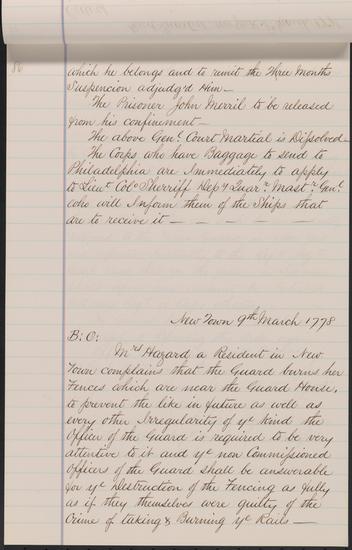 86
which he belongs and to remit the Three Months
Suspencion adjudg'd Him —
The Prisoner John Merril to be released
from his confinement —
The above Genl. Court Martial is Dissolved —
The Corps who have Baggage to send to
Philadelphia are Immediately to apply
to Lieut Colo Sherriff Depy Quarr Mastr Genl
who will Inform them of the Ships that
are to receive it —
New Town 9th March 1778
B: O:
Mrs Hazard a Resident in New
Town complains that the Guard burns her
Fences which are near the Guard House,
to prevent the like in future as well as
every other Irregularity of ye kind the
Officer of the Guard is required to be very
attentive to it and ye non Commissioned
Officers of the Guard shall be answerable
for ye Destruction of the Fencing as fully
as if they themselves were guilty of the
Crime of taking & Burning ye Rails —